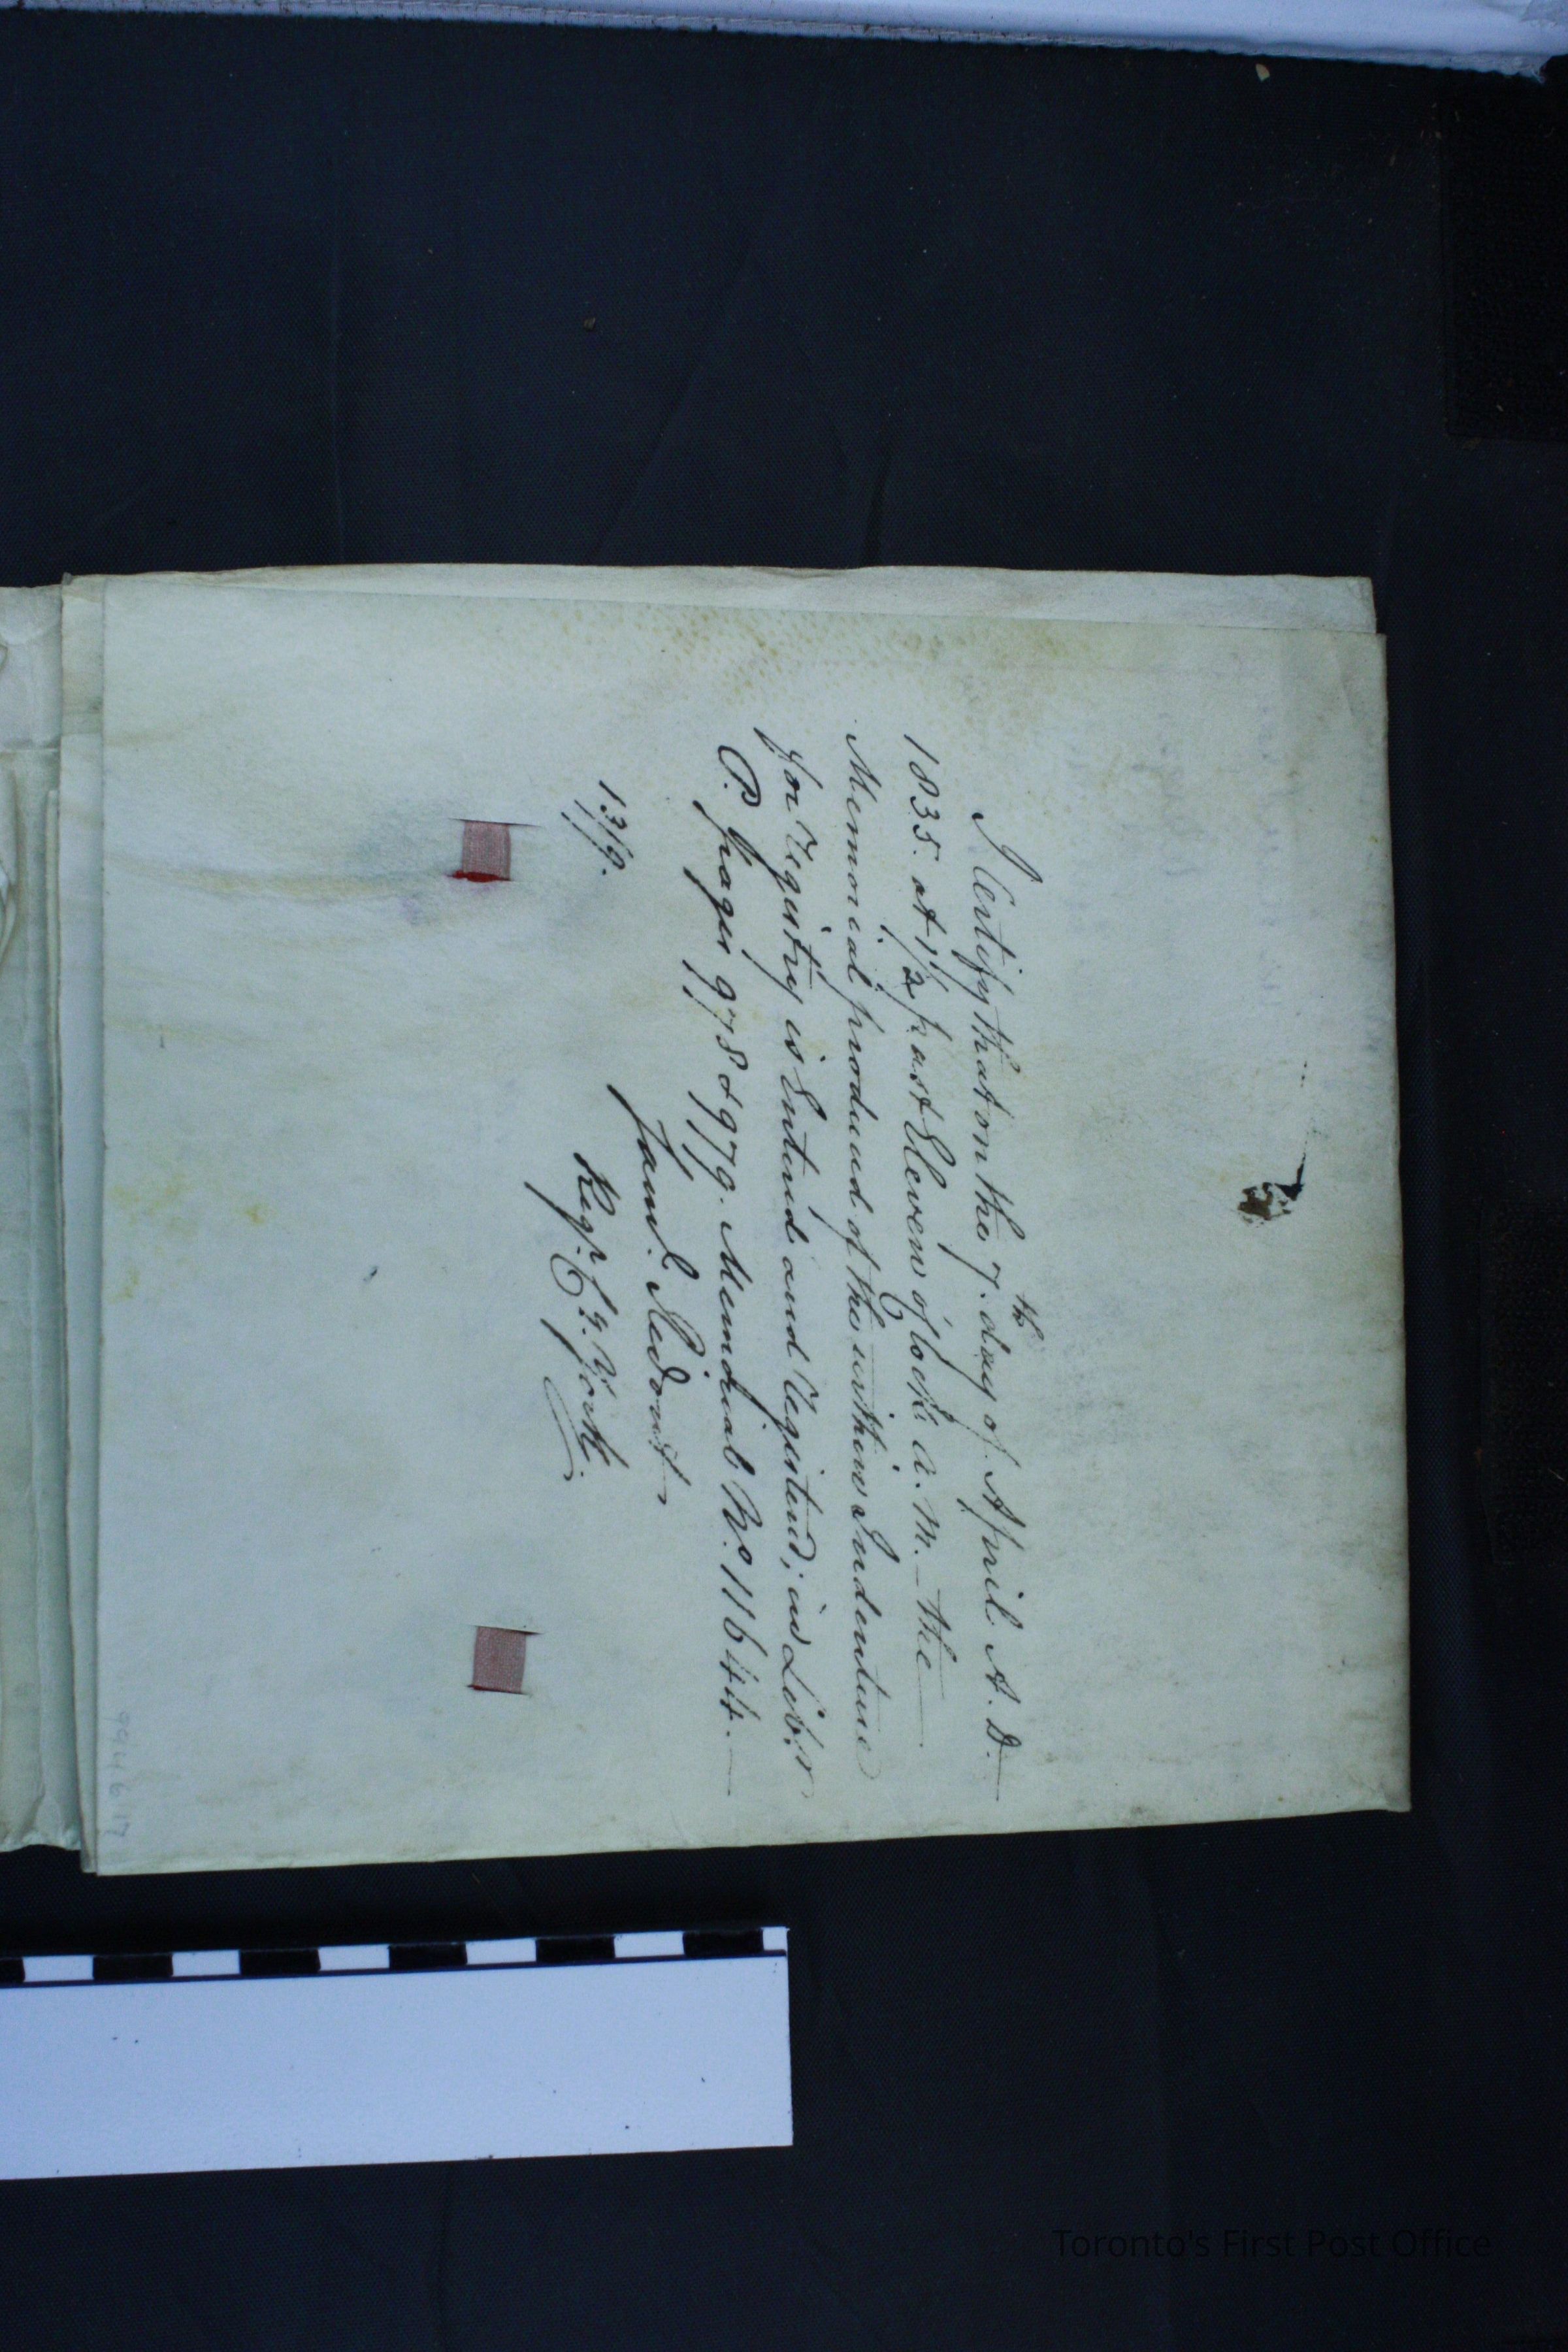 I Certify that on the 7.th day of April A. D.
1835. at 1/2 past Eleven o'Clock A. M. - the
Memorial produced of the within Indenture
for Registry is Entered and Registered; in Liber
P. Pages 978 & 979. Memorial No. 11644.
Saml. Ridout
Regr. Cy. York.
13/9.
994.6.17
Toronto's First Post Office